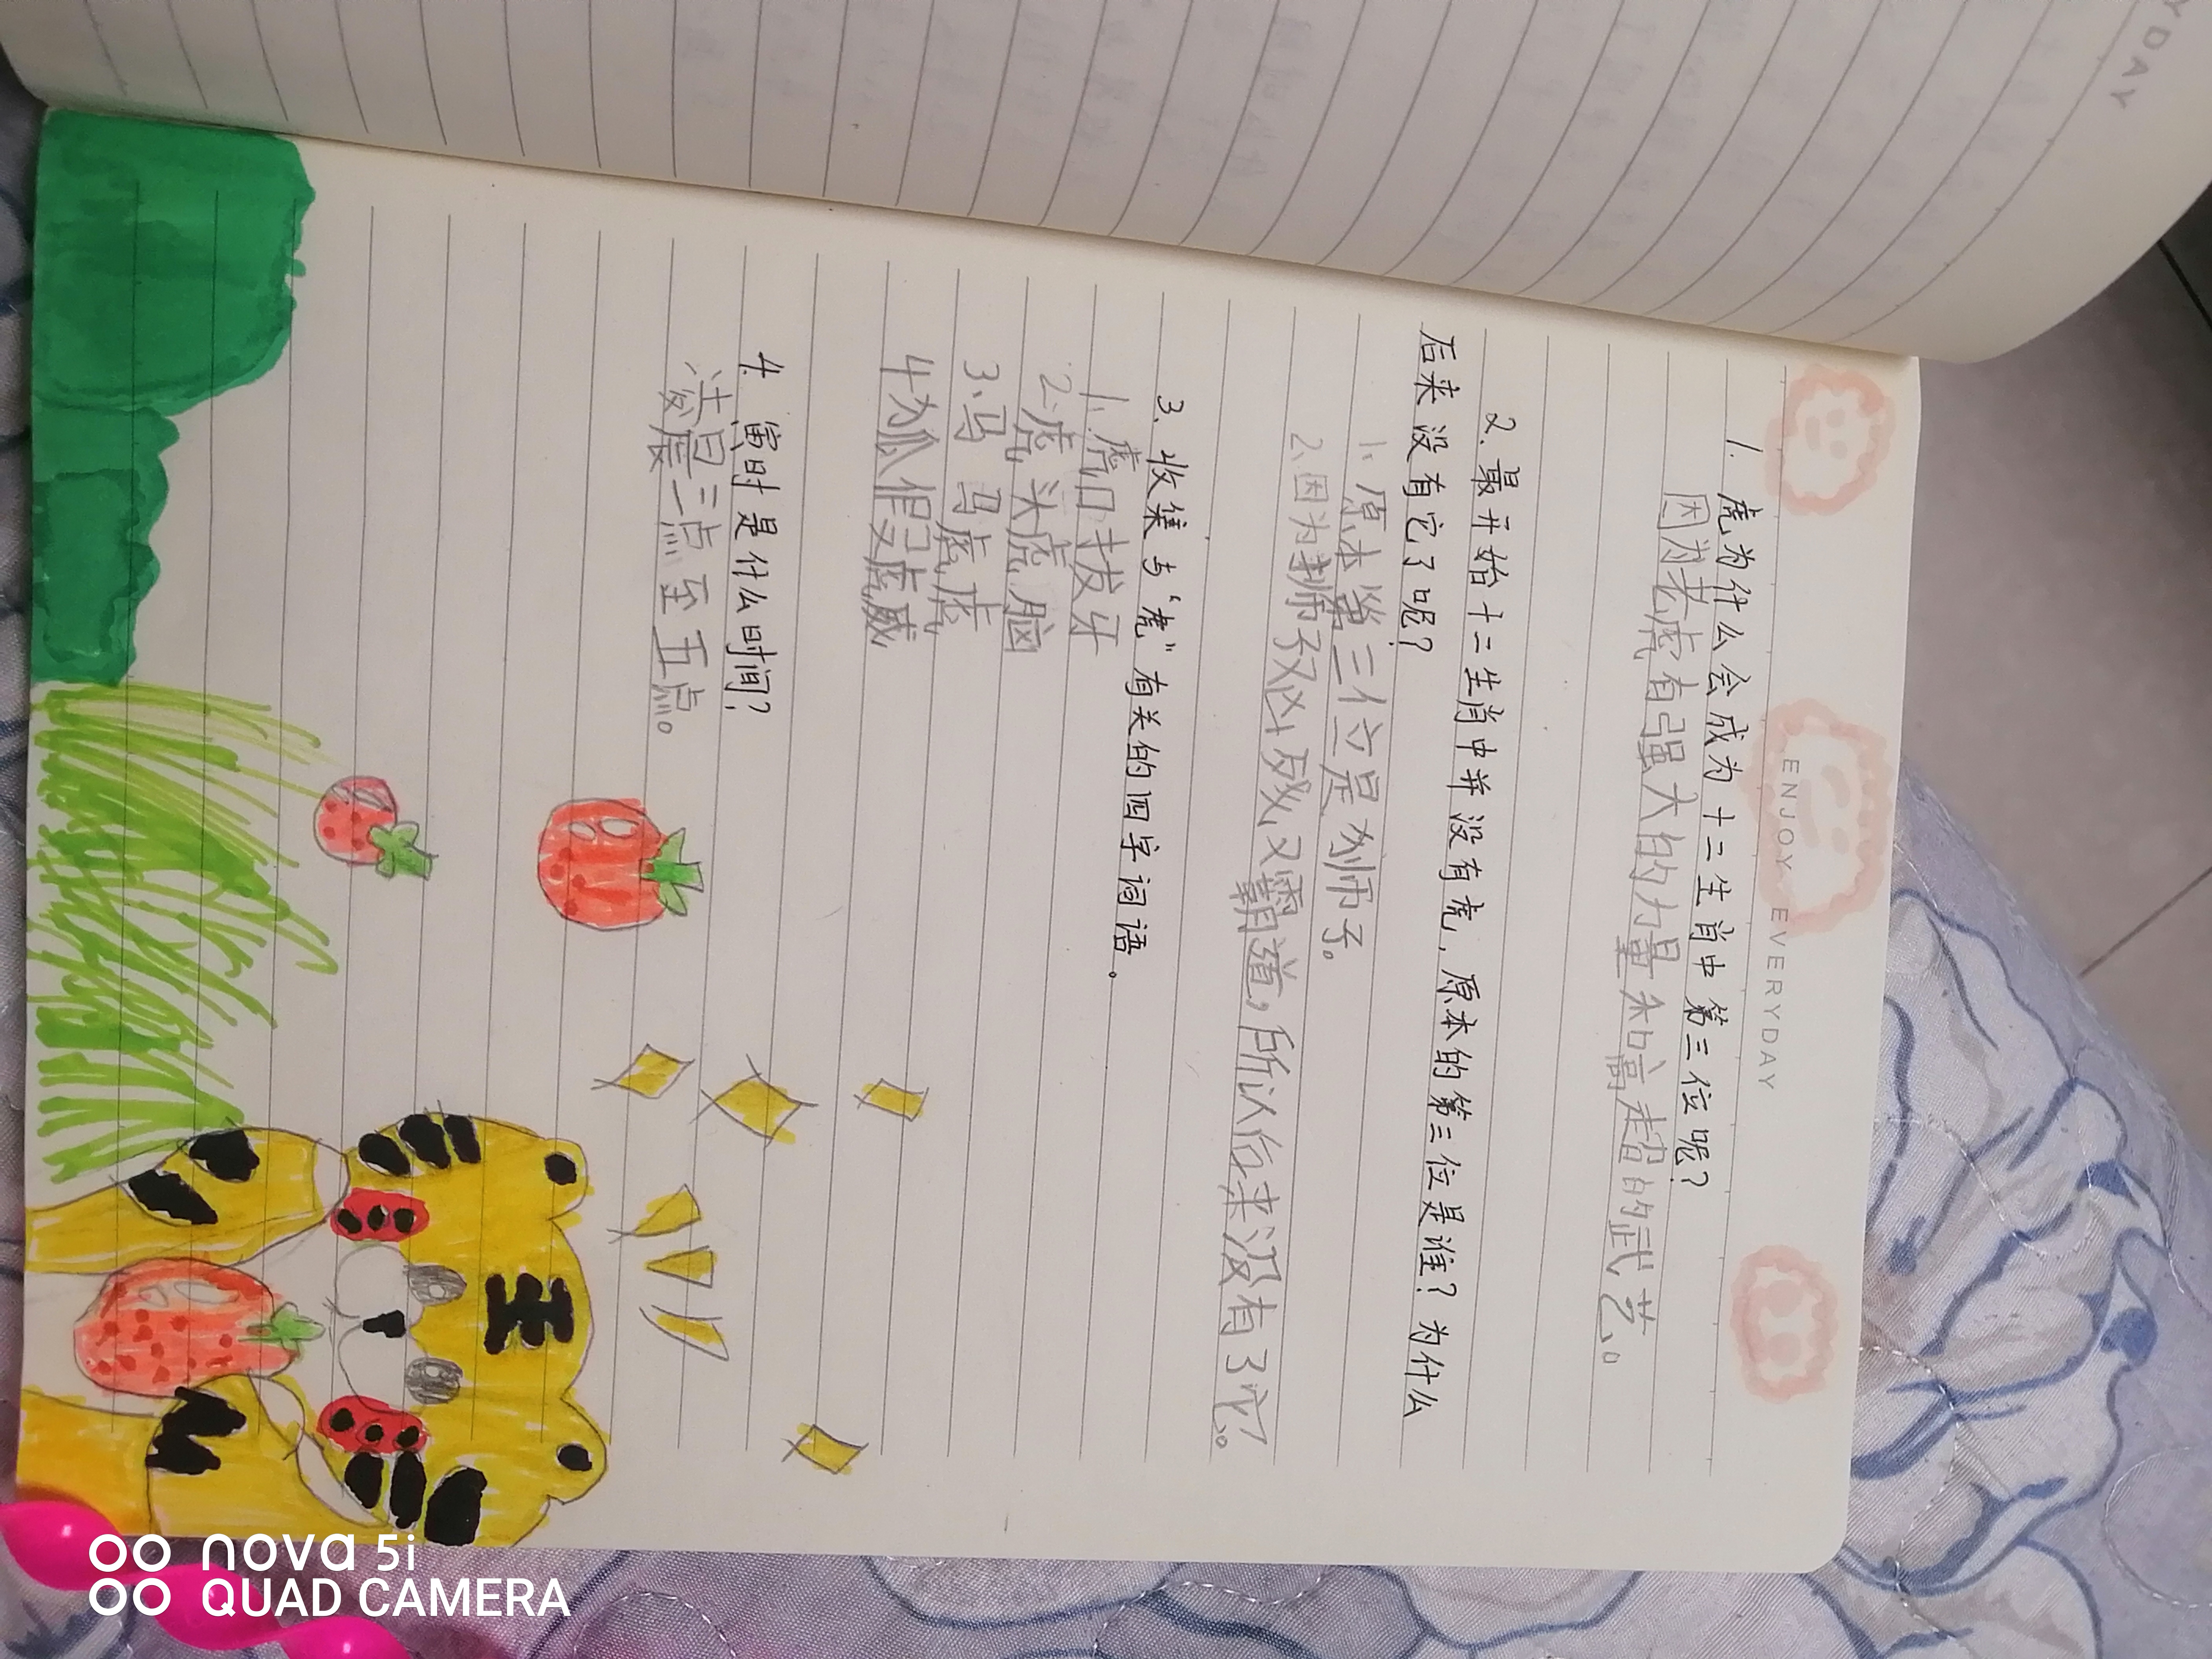 ENJOY EVERYDAY
1. 虎为什么会成为十二生肖中第三位呢?
因为老虎有强大的力量和高超的武艺。
2. 最开始十二生肖中并没有虎,原本的第三位是谁?为什么
后来没有它了呢?
1、原本第三位是狮子。
2、因为狮子又凶残又霸道,所以后来没有了它。
3、收集与“虎”有关的四字词语。
1、虎口拔牙
2、虎头虎脑
3、马马虎虎
4、狐假虎威
4. 寅时是什么时间?
凌晨三点至五点。
王
YDAY
nova 5i
QUAD CAMERA